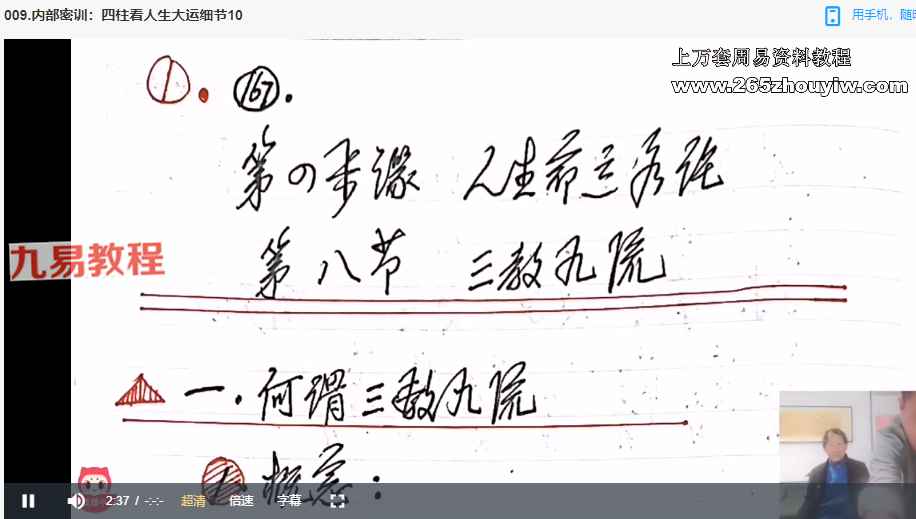 009.内部密训：四柱看人生大运细节10
用手机，随时
上万套周易资料教程
www.265zhouyiw.com
①. 167.
第四步 人生命运
第八节 三教九流
九易教程
一.何谓三教九流
概念：
2:37 / -:-:- 超清 倍速 字幕